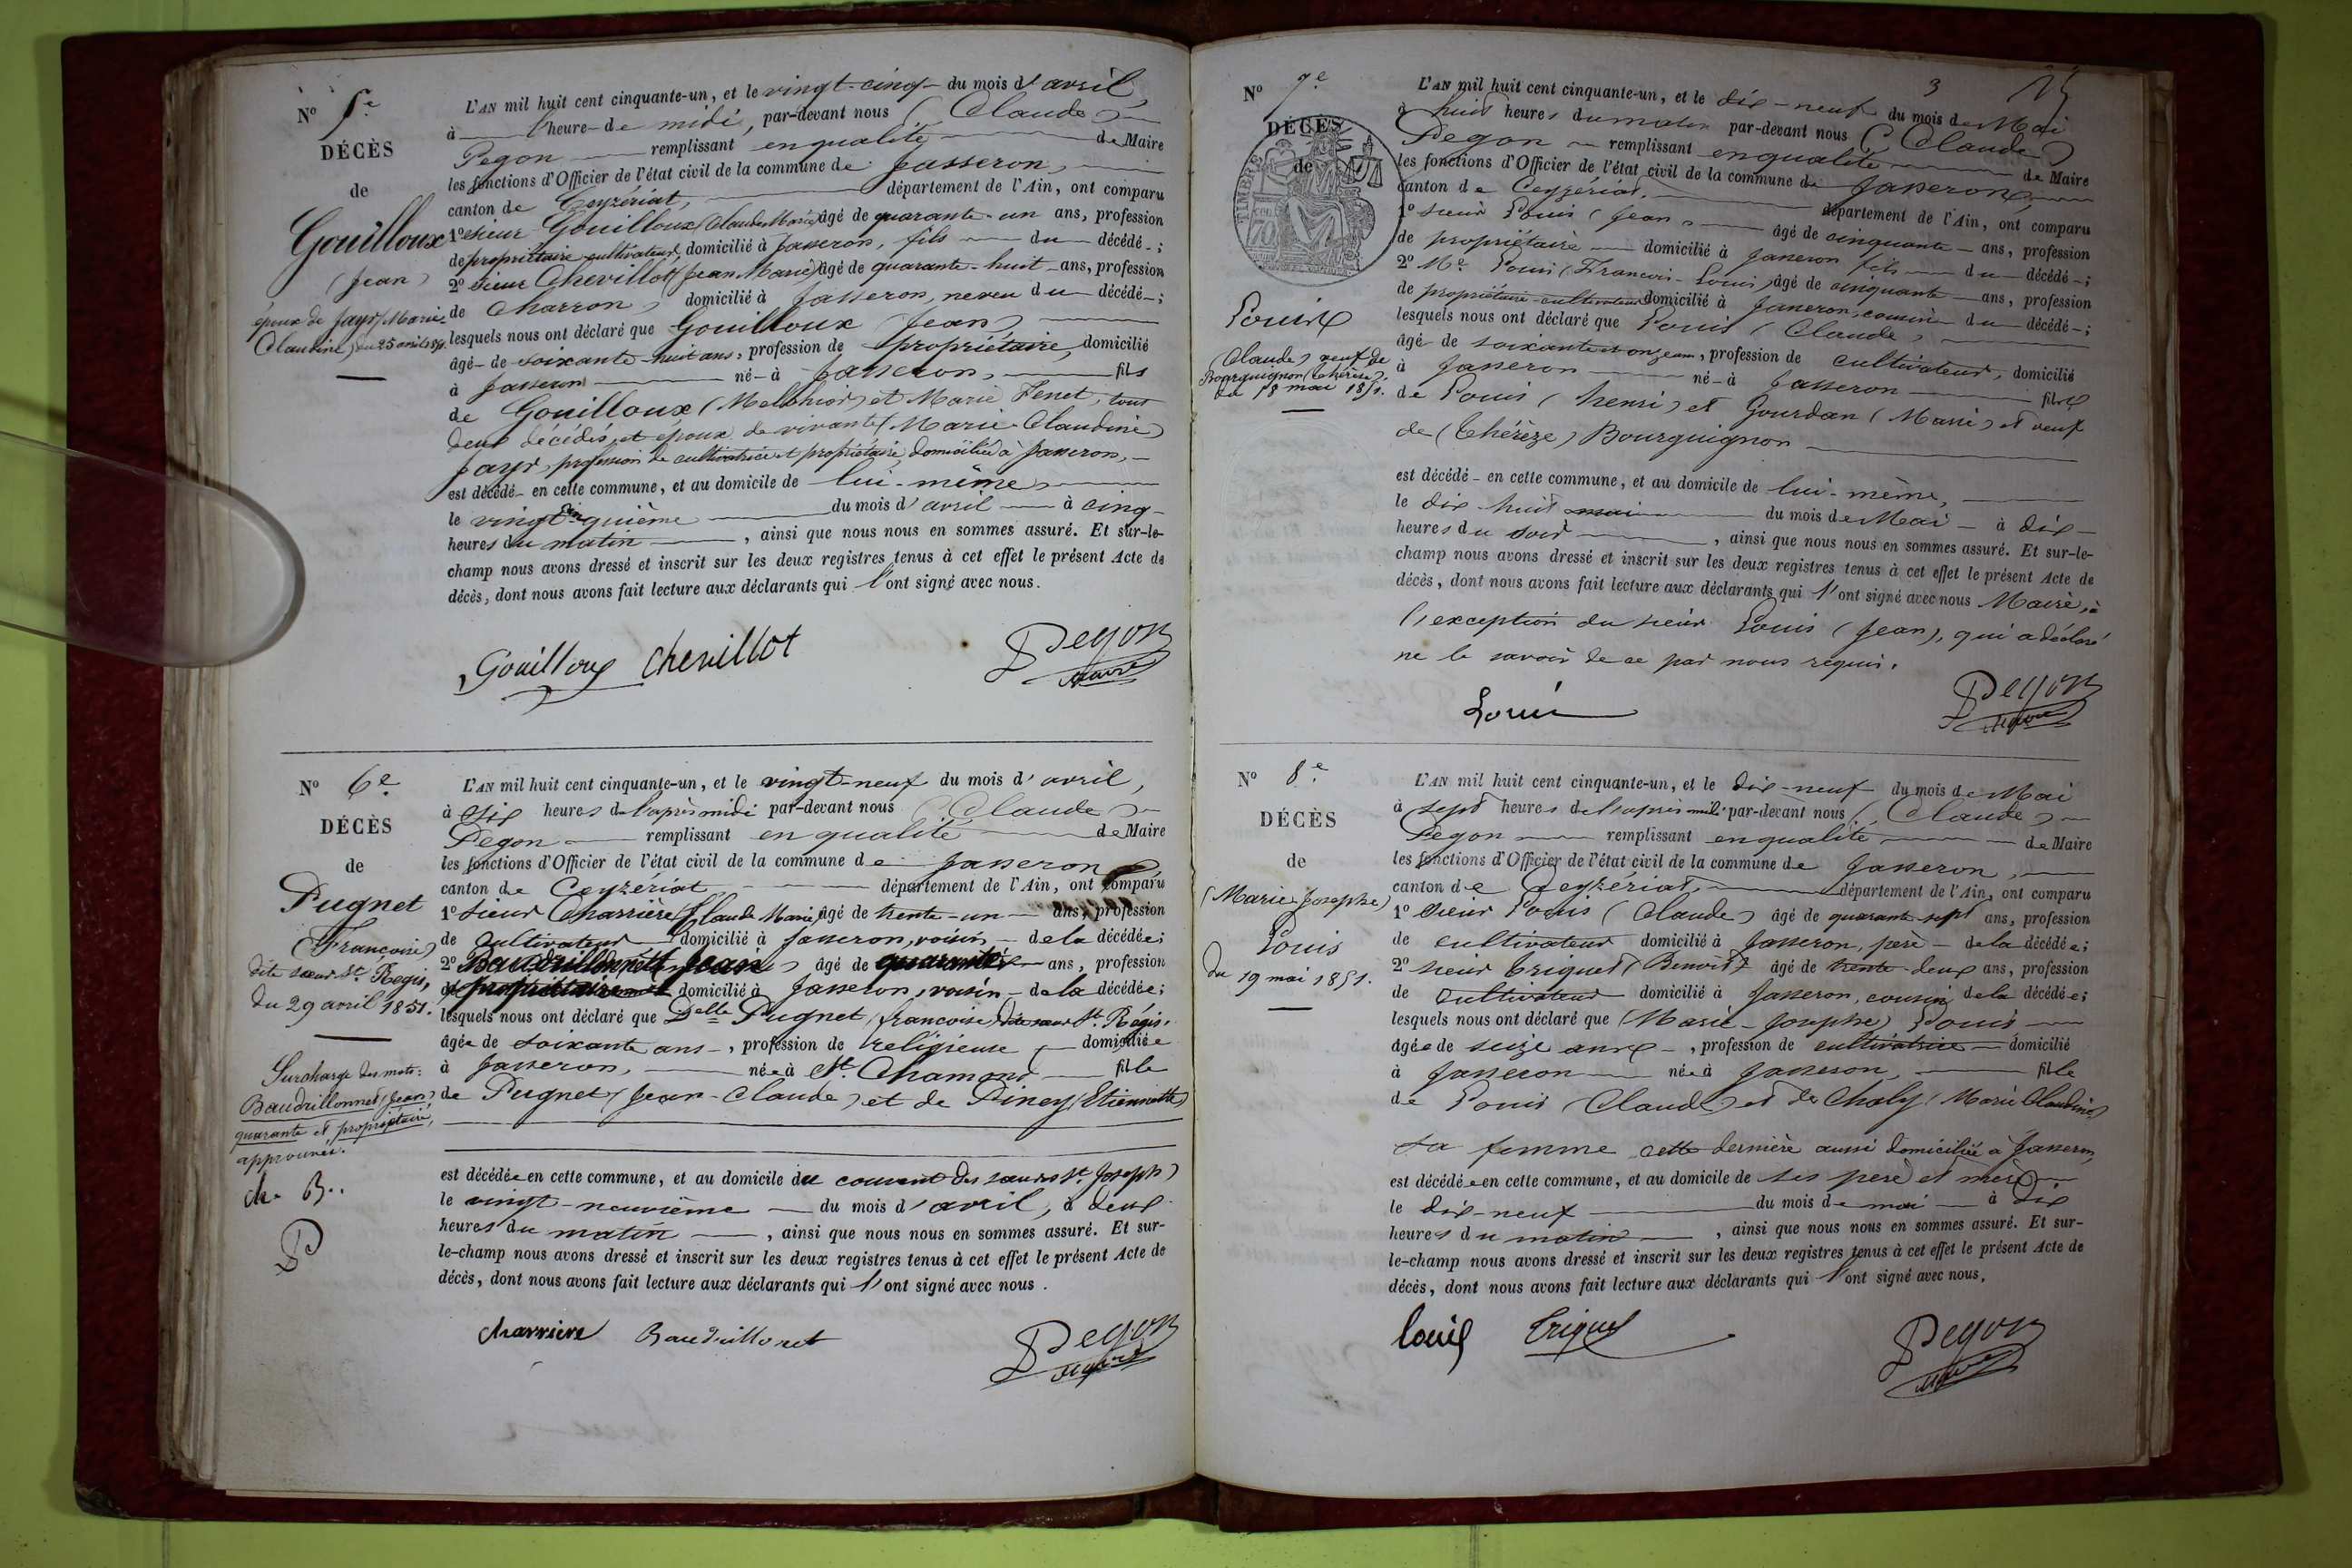 Nº 5e
DÉCÈS
de
Gouilloux
(Jean)
époux de Jayr (Marie-
Claudine) du 25 avril 1851.
L'AN mil huit cent cinquante-un, et le vingt-cinq du mois d'avril,
à l'heure de midi, par-devant nous (Claude)
Pegon remplissant en qualité de Maire
les fonctions d'Officier de l'état civil de la commune de Jasseron,
canton de Ceyzériat, département de l'Ain, ont comparu
1º sieur Gouilloux (Claude Marie) âgé de quarante-un ans, profession
de propriétaire cultivateur, domicilié à Jasseron, fils du décédé;
2º sieur Chevillot (Jean Marie) âgé de quarante-huit ans, profession
de charron, domicilié à Jasseron, neveu du décédé;
lesquels nous ont déclaré que Gouilloux (Jean)
âgé de soixante-huit ans, profession de propriétaire, domicilié
à Jasseron né à Jasseron, fils
de Gouilloux (Melchior) et Marie Fenet, tous
deux décédés, et époux de vivante (Marie-Claudine)
Jayr, profession de cultivatrice et propriétaire, domiciliée à Jasseron,
est décédé en cette commune, et au domicile de lui-même,
le vingt-cinquième du mois d'avril à cinq
heures du matin, ainsi que nous nous en sommes assuré. Et sur-le-
champ nous avons dressé et inscrit sur les deux registres tenus à cet effet le présent Acte de
décès, dont nous avons fait lecture aux déclarants qui l'ont signé avec nous.
Gouilloux Chevillot Pegon
Maire
Nº 6e
DÉCÈS
de
Pugnet
(Françoise)
dite sœur St. Régis,
du 29 avril 1851.
Surcharge des mots:
Baudrillonnet (Jean),
quarante et propriétaire,
approuvée.
ch. B..
P
L'AN mil huit cent cinquante-un, et le vingt-neuf du mois d'avril,
à six heures de l'après midi par-devant nous (Claude)
Pegon remplissant en qualité de Maire
les fonctions d'Officier de l'état civil de la commune de Jasseron
canton de Ceyzériat département de l'Ain, ont comparu
1º sieur Charrière (Claude Marie) âgé de trente-un ans, profession
de cultivateur domicilié à Jasseron, voisin de la décédée;
2º Baudrillonnet (Jean) âgé de quarante ans, profession
de propriétaire domicilié à Jasseron, voisin de la décédée;
lesquels nous ont déclaré que Delle Pugnet (françoise) dite sœur St. Régis,
âgée de soixante ans, profession de religieuse, domiciliée
à Jasseron, née à St. Chamond fille
de Pugnet (Jean-Claude) et de Piney (Etiennette)
est décédée en cette commune, et au domicile du couvent des sœurs St. Joseph
le vingt-neuvième du mois d'avril, à deux
heures du matin, ainsi que nous nous en sommes assuré. Et sur-
le-champ nous avons dressé et inscrit sur les deux registres tenus à cet effet le présent Acte de
décès, dont nous avons fait lecture aux déclarants qui l'ont signé avec nous.
charriere Baudrillonet Pegon
Maire
3
Nº 7e
DÉCÈS
de
TIMBRE
70
Louis
(Claude) veuf de
Bourguignon (Thérèse).
du 18 mai 1851.
L'AN mil huit cent cinquante-un, et le dix-neuf du mois de Mai
à huit heures du matin par-devant nous (Claude)
Pegon remplissant en qualité de Maire
les fonctions d'Officier de l'état civil de la commune de Jasseron
canton de Ceyzériat, département de l'Ain, ont comparu
1º sieur Louis (Jean) âgé de cinquante ans, profession
de propriétaire domicilié à Jasseron fils du décédé;
2º Me. Louis (François-Louis) âgé de cinquante ans, profession
de propriétaire-cultivateur domicilié à Jasseron, cousin du décédé;
lesquels nous ont déclaré que Louis (Claude)
âgé de soixante et onze ans, profession de cultivateur, domicilié
à Jasseron né à Jasseron fils
de Louis (henri) et Gourdan (Marie) et veuf
de (Thérèze) Bourguignon
est décédé en cette commune, et au domicile de lui-même,
le dix huit mai du mois de Mai à dix
heures du soir, ainsi que nous nous en sommes assuré. Et sur-le-
champ nous avons dressé et inscrit sur les deux registres tenus à cet effet le présent Acte de
décès, dont nous avons fait lecture aux déclarants qui l'ont signé avec nous Maire, à
l'exception du sieur Louis (Jean), qui a déclaré
ne le savoir de ce par nous requis.
Louis Pegon
Maire
Nº 8e
DÉCÈS
de
(Marie-Josephe)
Louis
du 19 mai 1851.
L'AN mil huit cent cinquante-un, et le dix-neuf du mois de Mai
à sept heures de l'après midi par-devant nous (Claude)
Pegon remplissant en qualité de Maire
les fonctions d'Officier de l'état civil de la commune de Jasseron,
canton de Ceyzériat, département de l'Ain, ont comparu
1º sieur Louis (Claude) âgé de quarante-sept ans, profession
de cultivateur domicilié à Jasseron, père de la décédée;
2º sieur Criquet (Benoît) âgé de trente-deux ans, profession
de cultivateur domicilié à Jasseron, cousin de la décédée;
lesquels nous ont déclaré que (Marie-Josephe) Louis
âgée de seize ans, profession de cultivatrice domicilié
à Jasseron née à Jasseron, fille
de Louis (Claude) et de Chaly (Marie Claudine)
sa femme cette dernière aussi domiciliée à Jasseron,
est décédée en cette commune, et au domicile de ses père et mère
le dix-neuf du mois de mai à dix
heures du matin, ainsi que nous nous en sommes assuré. Et sur-
le-champ nous avons dressé et inscrit sur les deux registres tenus à cet effet le présent Acte de
décès, dont nous avons fait lecture aux déclarants qui l'ont signé avec nous,
Louis Criquet Pegon
Maire